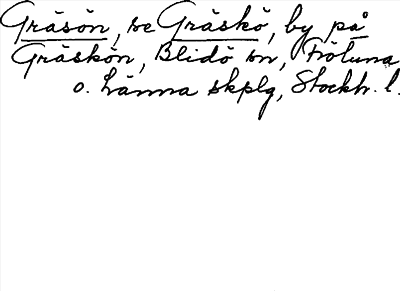 Gräsön, se Gräskö, by på
Gräskön, Blidö sn, Frötuna
o. Länna skplg, Stockh. l.